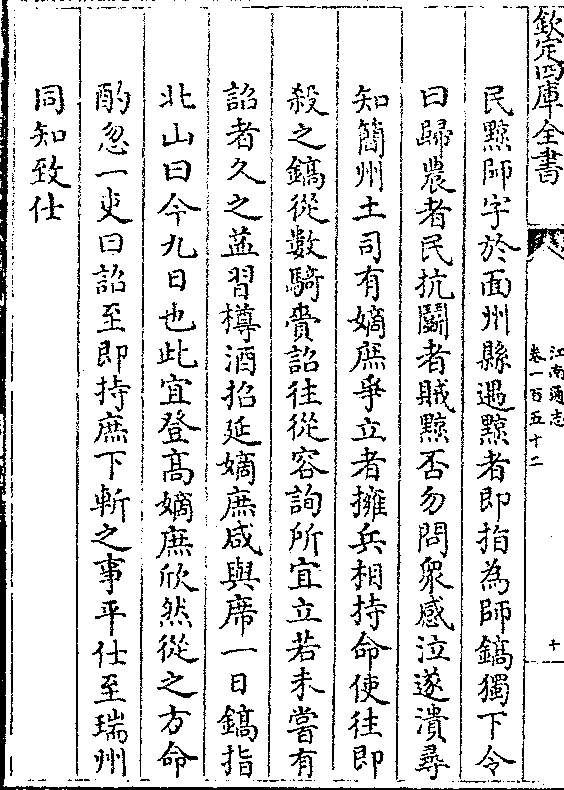 欽定四庫全書
江南通志
卷一百五十二
十
民黥師字於面州縣遇黥者即指為師鎬獨下令
曰歸農者民抗鬭者賊黥否勿問衆感泣遂潰尋
知簡州土司有嫡庶爭立者擁兵相持命使往即
殺之鎬從數騎賫詔往從容詢所宜立若未嘗有
詔者久之益習樽酒招延嫡庶咸與席一日鎬指
北山曰今九日也此宜登高嫡庶欣然從之方命
酌忽一吏曰詔至即持庶下斬之事平仕至瑞州
同知致仕